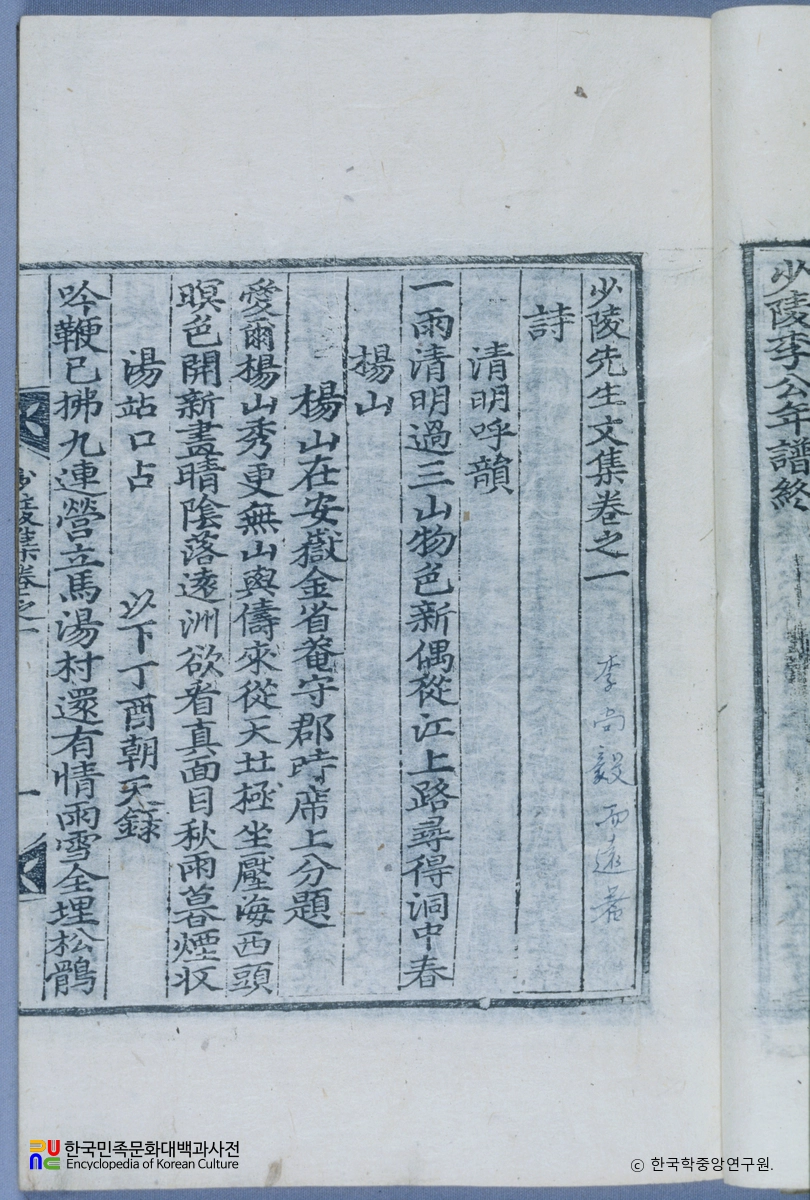 少陵李公年譜終
少陵先生文集卷之一
李尙毅而遠著
詩
清明呼韻
一雨清明過三山物色新偶從江上路尋得洞中春
楊山
楊山在安嶽金省菴守郡時席上分題
愛爾楊山秀更無山與儔來從天北極坐壓海西頭
暝色開新畫晴陰落遠洲欲看真面目秋雨暮煙收
湯站口占 以下丁酉朝天錄
吟鞭已拂九連營立馬湯村還有情雨雪全埋松鶻
少陵集卷之一
一
한국민족문화대백과사전
Encyclopedia of Korean Culture
ⓒ 한국학중앙연구원.